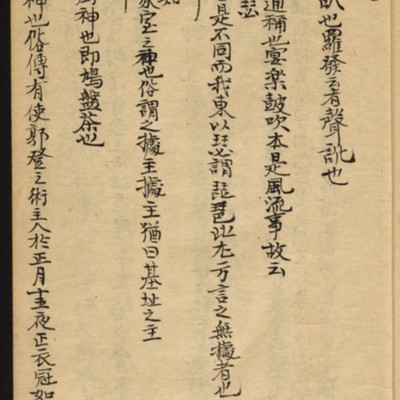 也羅發者聲訛也
通稱也宴樂鼓吹本是風流事故云
瑟
是不同而我東以瑟謂琵琶此尤方言之無據者也
家室之神也俗謂之據主據主猶曰基址之主
厨神也即鳩盤茶也
神也俗傳有使郭登之術主人於正月十五夜正衣冠